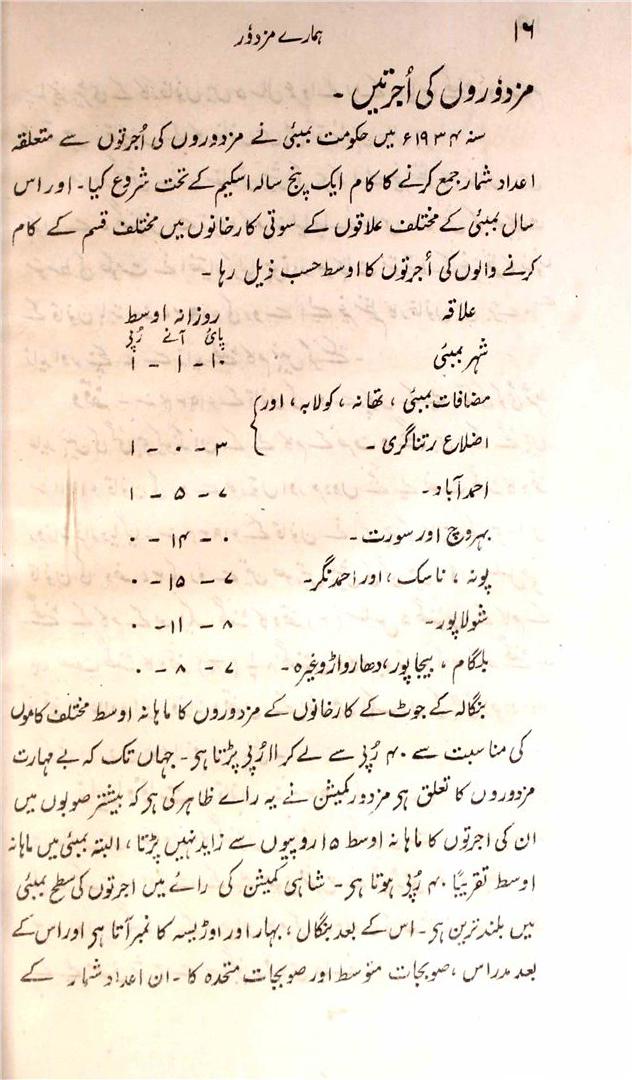 ۱۶
ہمارے مزدؤر
مزدؤروں کی اُجرتیں ۔
سنہ ۱۹۳۴ء میں حکومت بمبئی نے مزدوروں کی اُجرتوں سے متعلقہ
اعداد شمار جمع کرنے کا کام ایک پنج سالہ اسکیم کے تحت شروع کیا۔ اور اس
سال بمبئی کے مختلف علاقوں کے سوتی کارخانوں میں مختلف قسم کے کام
کرنے والوں کی اُجرتوں کا اوسط حسب ذیل رہا ۔
علاقہ روزانہ اوسط
پائی آنے رُپی
شہر بمبئی ۱۰ – ۱ – ۱
مضافات بمبئی ، تھانہ ، کولابہ ، اور }
اضلاع رتناگری ۔ ۳ – ۰ – ۱
احمدآباد۔ ۷ – ۵ – ۱
بھروچ اور سورت ۔ ۰ – ۱۴ – ۰
پونہ ، ناسک ، اور احمدنگر۔ ۷ – ۱۵ – ۰
شولاپور۔ ۸ – ۱۱ – ۰
بلگام ، بیجاپور، دھارواڑ وغیرہ ۔ ۷ – ۸ – ۰
بنگالہ کے جوٹ کے کارخانوں کے مزدوروں کا ماہانہ اوسط مختلف کاموں
کی مناسبت سے ۴۰ رُپی سے لے کر ۱۱ رُپی پڑتا ہی ۔ جہاں تک کہ بے مہارت
مزدوروں کا تعلق ہی مزدور کمیشن نے یہ راے ظاہر کی ہی کہ بیشتر صوبوں میں
ان کی اجرتوں کا ماہانہ اوسط ۱۵ روپیوں سے زاید نہیں پڑتا ، البتہ بمبئی میں ماہانہ
اوسط تقریبًا ۴۰ رُپی ہوتا ہی ۔ شاہی کمیشن کی رائے میں اجرتوں کی سطح بمبئی
میں بلند ترین ہی ۔ اس کے بعد بنگال ، بہار اور اوڑیسہ کا نمبر آتا ہی اور اس کے
بعد مدراس ، صوبجات متوسط اور صوبجات متحدہ کا ۔ ان اعداد شمار کے